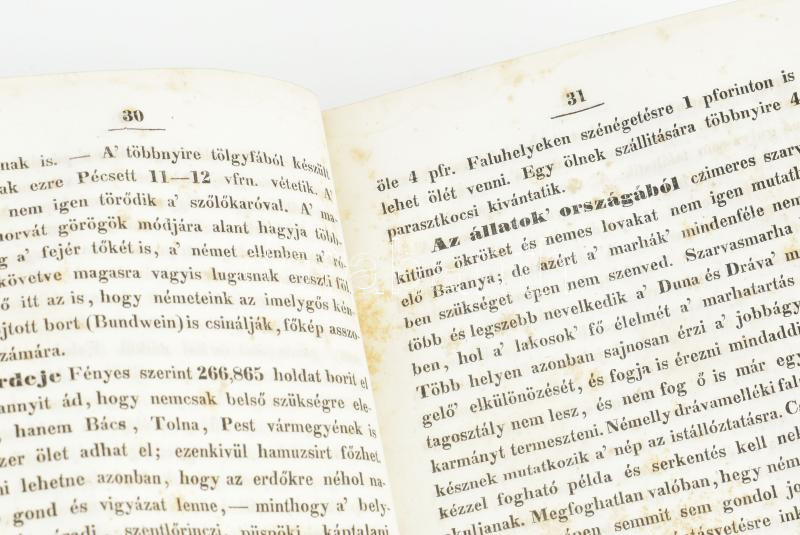 30
nak is. — A' többnyire tölgyfából készült
ak ezre Pécsett 11—12 vfrn. vétetik. A'
nem igen törődik a' szőlőkaróval. A' ma-
horvát görögök módjára alant hagyja több-
g a' fejér tőkét is, a' német ellenben a'
követve magasra vagyis lugasnak ereszti föl
ő itt az is, hogy németeink az imelygős kén-
jtott bort (Bundwein) is csinálják, főkép asszo-
számára.
rdeje Fényes szerint 266,865 holdat borit el
annyit ád, hogy nemcsak belső szükségre ele-
, hanem Bács, Tolna, Pest vármegyének is
zer ölet adhat el; ezenkivül hamuzsirt főzhet
ni lehetne azonban, hogy az erdőkre néhol na-
gond és vigyázat lenne, — minthogy a' bely-
áradi, szentlőrinczi, püspöki, káptalani
31
öle 4 pfr. Faluhelyeken szénégetésre 1 pforinton is
lehet ölét venni. Egy ölnek szállitására többnyire 4
parasztkocsi kivántatik.
Az állatok' országából czimeres szarv
kitünő ökröket és nemes lovakat nem igen mutath
elő Baranya; de azért a' marhák' mindenféle nem
ben szükséget épen nem szenved. Szarvasmarha
több és legszebb nevelkedik a' Duna és Dráva' m
ben, hol a' lakosok' fő élelmét a' marhatartás
Több helyen azonban sajnosan érzi a' jobbágy
gelő' elkülönözését, és fogja is érezni mindaddi
tagosztály nem lesz, és nem fog ő is már egy
karmányt termeszteni. Némelly drávamelléki fal
késznek mutatkozik a' nép az istállóztatásra. Cs
kézzel fogható példa és serkentés kell nek
okuljanak. Megfoghatlan valóban, hegy ném
épen semmit sem gondol jo